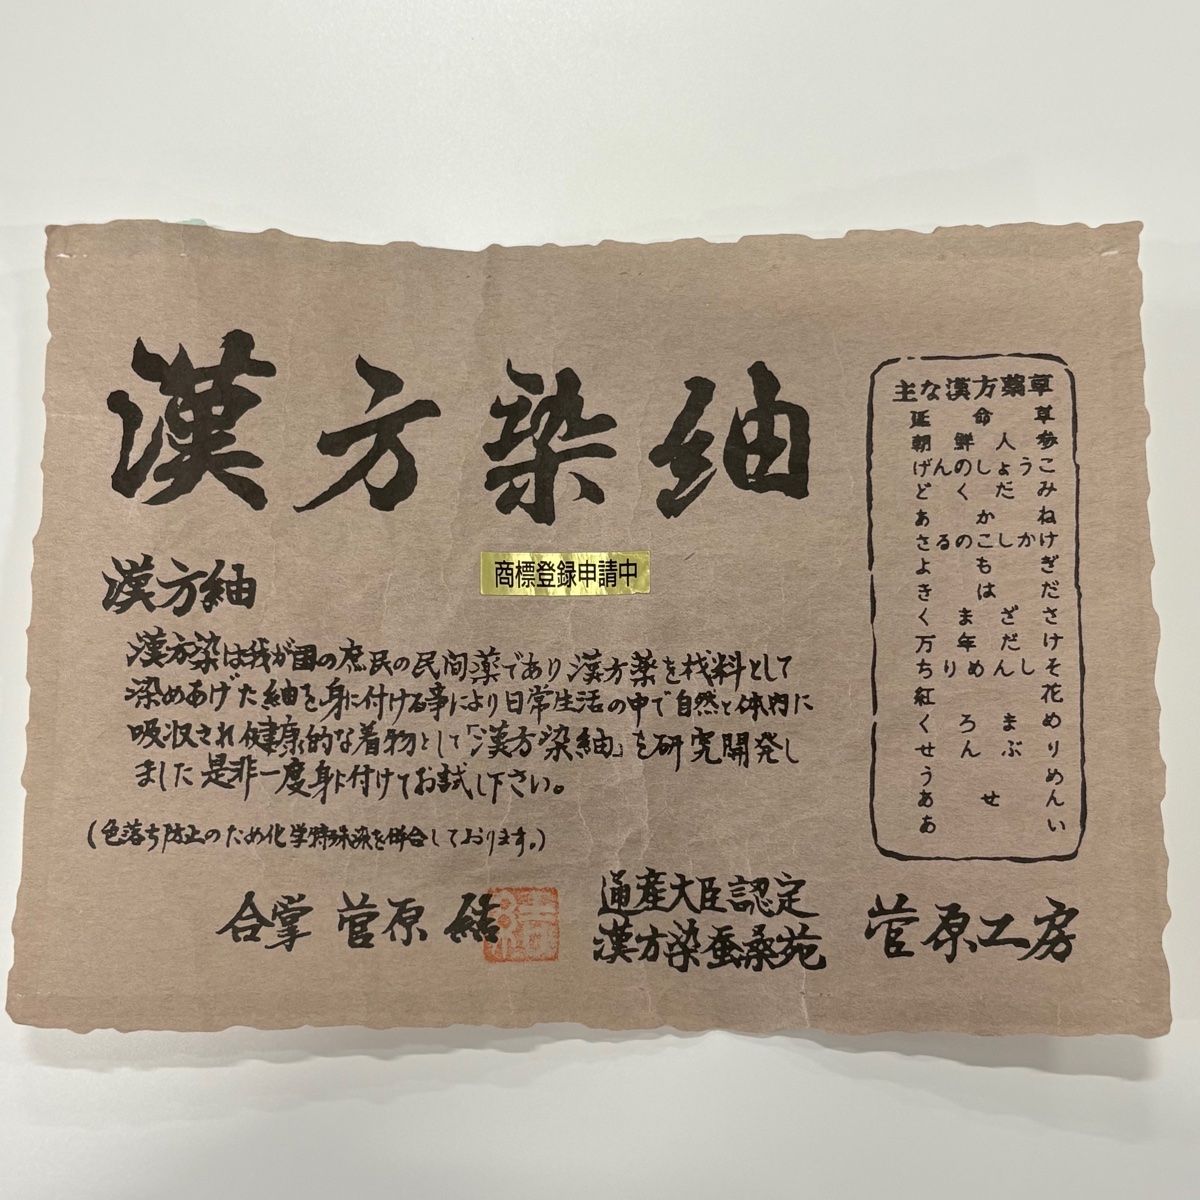 漢方染紬
商標登録申請中
漢方紬
漢方染は我が国の庶民の民間薬であり漢方薬を材料として
染めあげた紬を身に付ける事により日常生活の中で自然と体内に
吸収され健康的な着物として「漢方染紬」を研究開発し
ました是非一度身に付けてお試し下さい。
(色落ち防止のため化学特殊染を併合しております。)
合掌 菅原 結
通産大臣認定
漢方染蚕桑苑
菅原工房
主な漢方薬草
延命草
朝鮮人参
げんのしょうこ
どくだみ
あかね
さるのこしかけ
よもぎ
きはだ
くまざさ
万年だけ
ちりめんしそ
紅花
くろまめ
せんぶり
うめ
あせん
あい